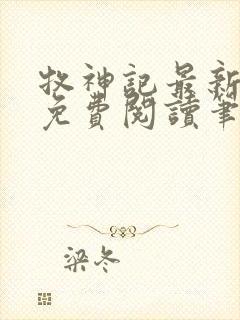 牧神記最新
免費閱讀筆
梁冬